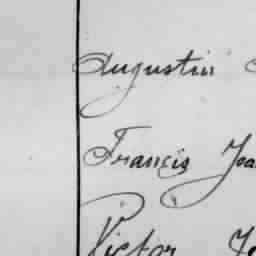 Augustin
Francis
Victor